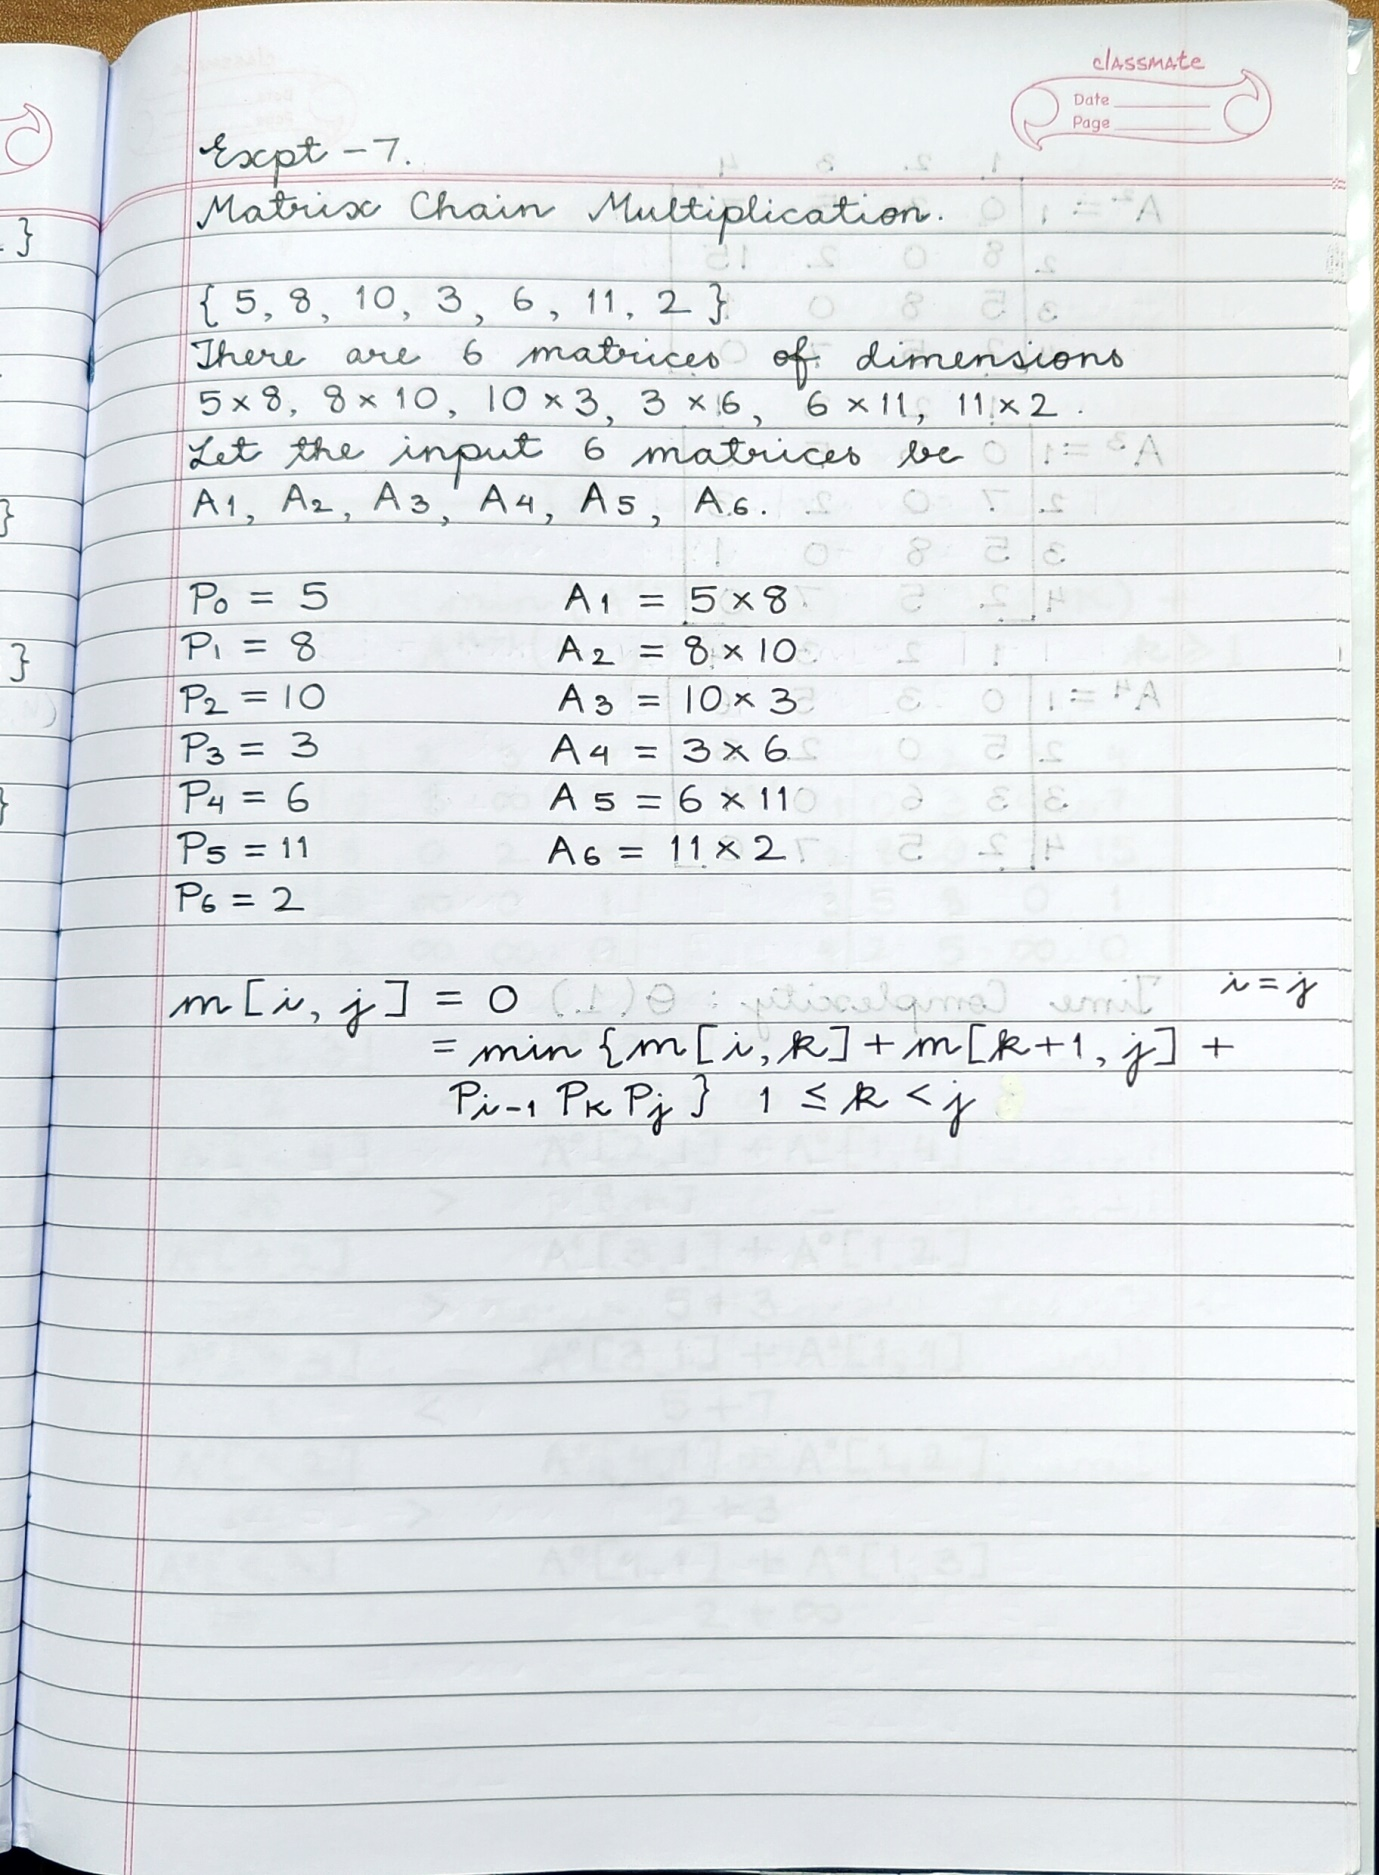 classmate
Date
Page
Expt - 7.
Matrix Chain Multiplication.
{ 5, 8, 10, 3, 6, 11, 2 }
There are 6 matrices of dimensions
5 × 8, 8 × 10, 10 × 3, 3 × 6, 6 × 11, 11 × 2 .
Let the input 6 matrices be
A1, A2, A3, A4, A5, A6.
P0 = 5 A1 = 5 × 8
P1 = 8 A2 = 8 × 10
P2 = 10 A3 = 10 × 3
P3 = 3 A4 = 3 × 6
P4 = 6 A5 = 6 × 11
P5 = 11 A6 = 11 × 2
P6 = 2
m [ i, j ] = 0 i = j
= min { m [ i, k ] + m [ k+1, j ] +
Pi-1 Pk Pj } 1 ≤ k < j